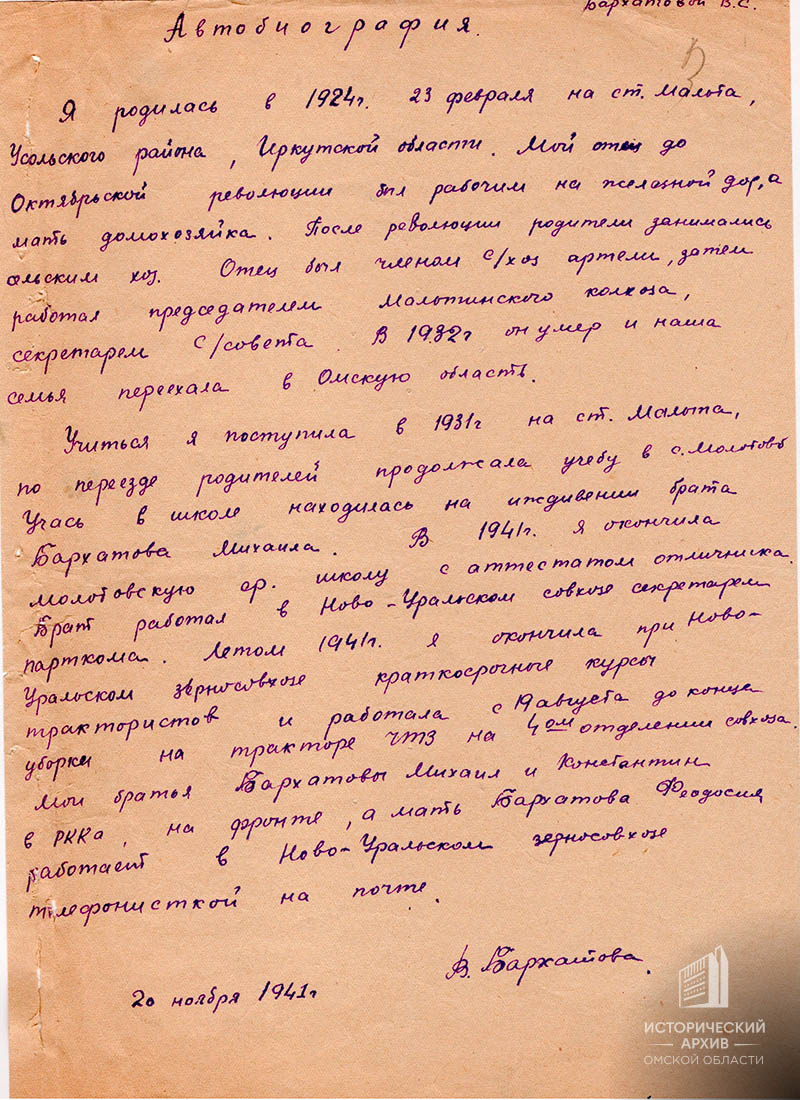 Бархатовой В.С.
Автобиография.
Я родилась в 1924г. 23 февраля на ст. Мальта,
Усольского района, Иркутской области. Мой отец до
Октябрьской революции был рабочим на желазной дор, а
мать домохозяйка. После революции родители занимались
сельским хоз. Отец был членом с/хоз артели, затем
работал председателем Мальтинского колхоза,
секретарем с/совета. В 1932г он умер и наша
семья переехала в Омскую область.
Учиться я поступила в 1931г на ст. Мальта,
по переезде родителей продолжала учебу в с. Молотово
Учась в школе находилась на иждивении брата
Бархатова Михаила. В 1941г. я окончила
молотовскую ср. школу с аттестатом отличника.
Брат работал в Ново-Уральском совхозе секретарем
парткома. Летом 1941г. я окончила при Ново-
Уральском зерносовхозе краткосрочные курсы
трактористов и работала с 19 августа до конца
уборки на тракторе ЧТЗ на 4ом отделении совхоза.
Мои братья Бархатовы Михаил и Константин
в РККа, на фронте, а мать Бархатова Феодосия
работает в Ново-Уральском зерносовхозе
телефонисткой на почте.
В. Бархатова.
20 ноября 1941г
ИСТОРИЧЕСКИЙ
АРХИВ
ОМСКОЙ ОБЛАСТИ